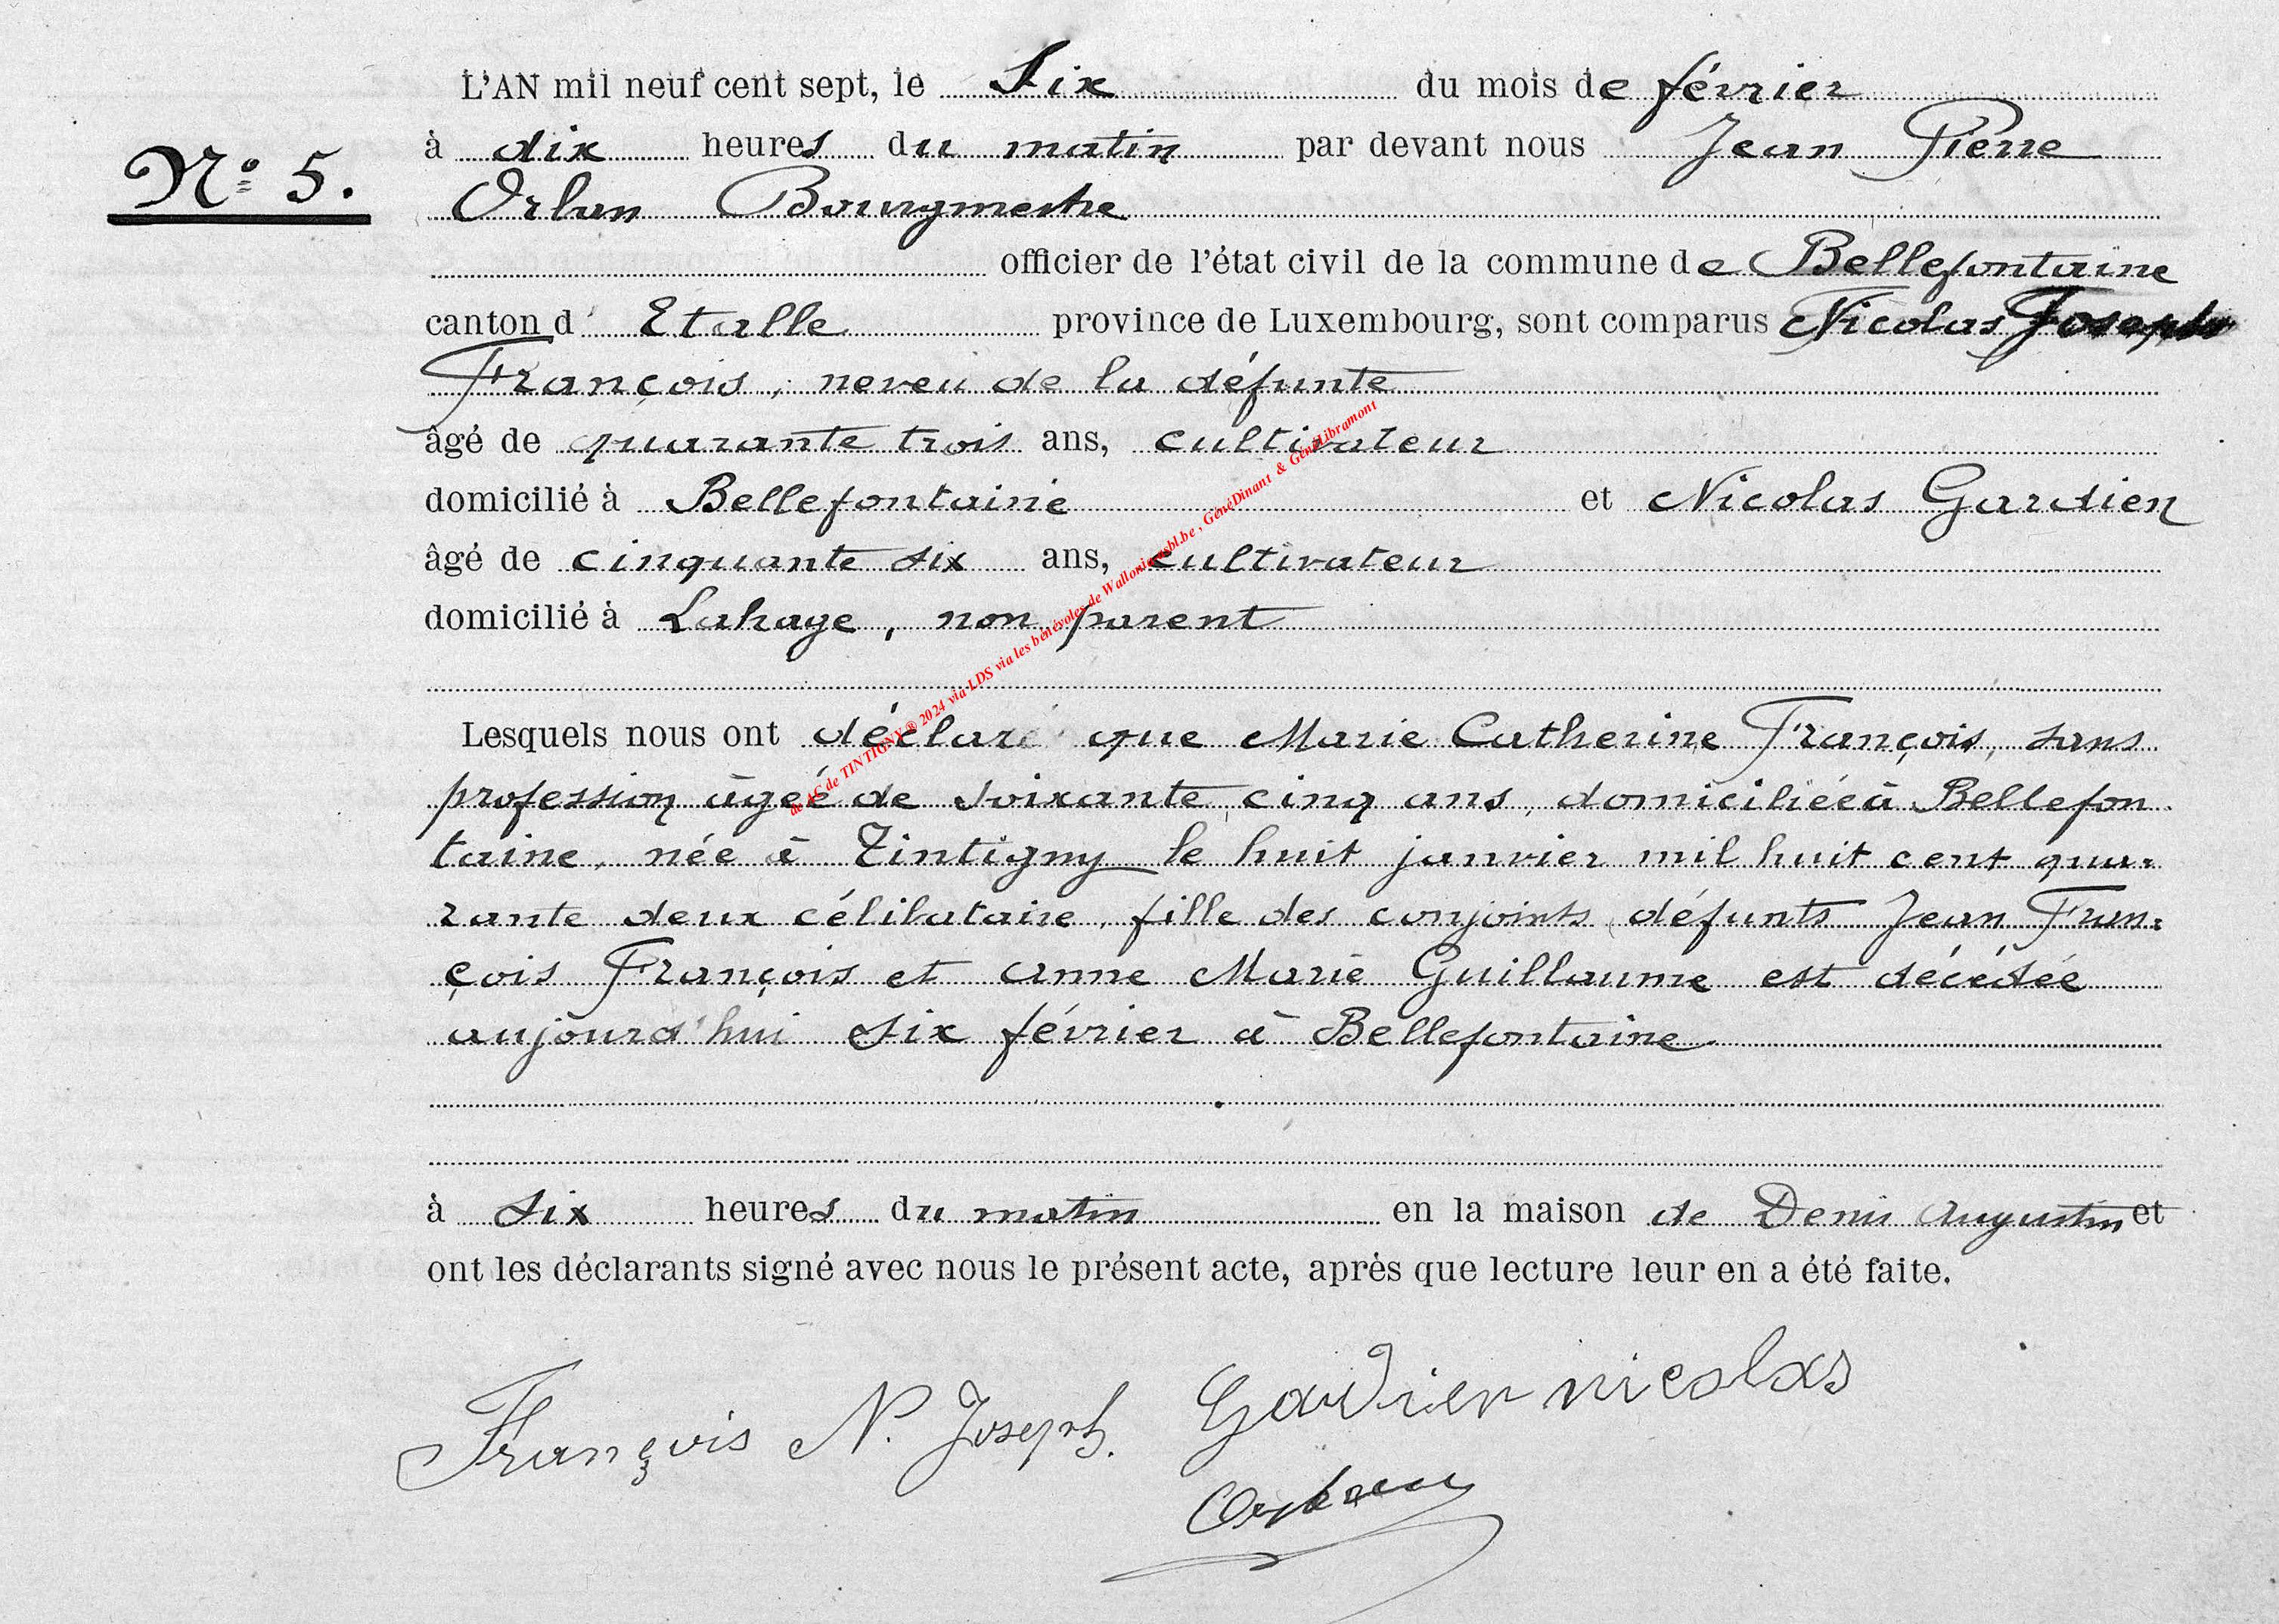 L'AN mil neuf cent sept, le Six du mois de février
à dix heures du matin par devant nous Jean Pierre
N° 5.
Orban Bourgmestre
officier de l'état civil de la commune de Bellefontaine
canton d' Etalle province de Luxembourg, sont comparus Nicolas Joseph
François, neveu de la défunte
âgé de quarante trois ans, cultivateur
domicilié à Bellefontaine et Nicolas Gardien
âgé de cinquante six ans, cultivateur
domicilié à Lahage, non parent
Lesquels nous ont déclaré que Marie Catherine François, sans
profession âgeé de soixante cinq ans, domiciliée à Bellefon
taine, née à Tintigny le huit janvier mil huit cent qua-
rante deux célibataire, fille des conjoints défunts Jean Fran-
çois François et Anne Marie Guillaume est décédée
aujourd'hui six février à Bellefontaine
à six heures du matin en la maison de Denis Augustin et
ont les déclarants signé avec nous le présent acte, après que lecture leur en a été faite.
François N. Joseph. Gardien nicolas
Orban
de AC de TINTIGNY® 2024 via LDS via les bénévoles de Walloniaasbl.be, GénéDinant & GénéLibramont